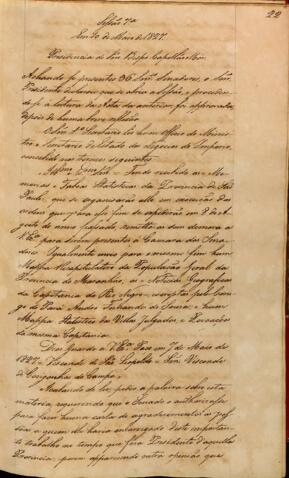 22
Sessão 7ª
Em 10 de Maio de 1827.
Presidencia do Snr. Bispo Capellão Mór.
Achando-se presentes 36 Snrs. Senadores, o Snr.
Presidente declarou que se abria a Sessão, e proceden-
do-se á leitura da Acta da anterior foi approvada
depois de huma breve reflexão
O Snr. 1º Secretario leo hum Officio do Ministro
e Secretario de Estado dos Negocios do Imperio,
concebido nos termos seguintes
Illmo. e Exmo. Snr. Tendo recebido as Me-
morias e Taboas Statisticas da Provincia de São
Paulo, que se organisarão em execução das
ordens que para esse fim se expedirão em 8 de Ag-
osto do anno passado, remetto-as sem demora a
V. Exª. para serem presentes á Camara dos Sena-
dores. Igualmente envio para o mesmo fim hum
Mappa da População Geral da
Provincia do Maranhão, as Noticias Geograficas
da Capitania do Rio Negro, escriptas pelo Cone-
go do Pará André Fernandes de Souza e hum
Mappa Statistico das Villas, Julgados, e Povoações
da mesma Capitania.
Deos Guarde a V. Exª. Paço em 7 de Maio de
1827. Visconde de S. Leopoldo. Snr. Visconde
de Congonhas do Campo.
Acabando de ler, pedio a palavra sobre esta
materia, requerendo que o Senado o authorisasse
para fazer huma carta de agradecimento á pes-
soa a quem elle havia encarregado deste importan-
te trabalho ao tempo que fôra Presidente d'aquella
Provincia; porem apparecendo outra opinião que